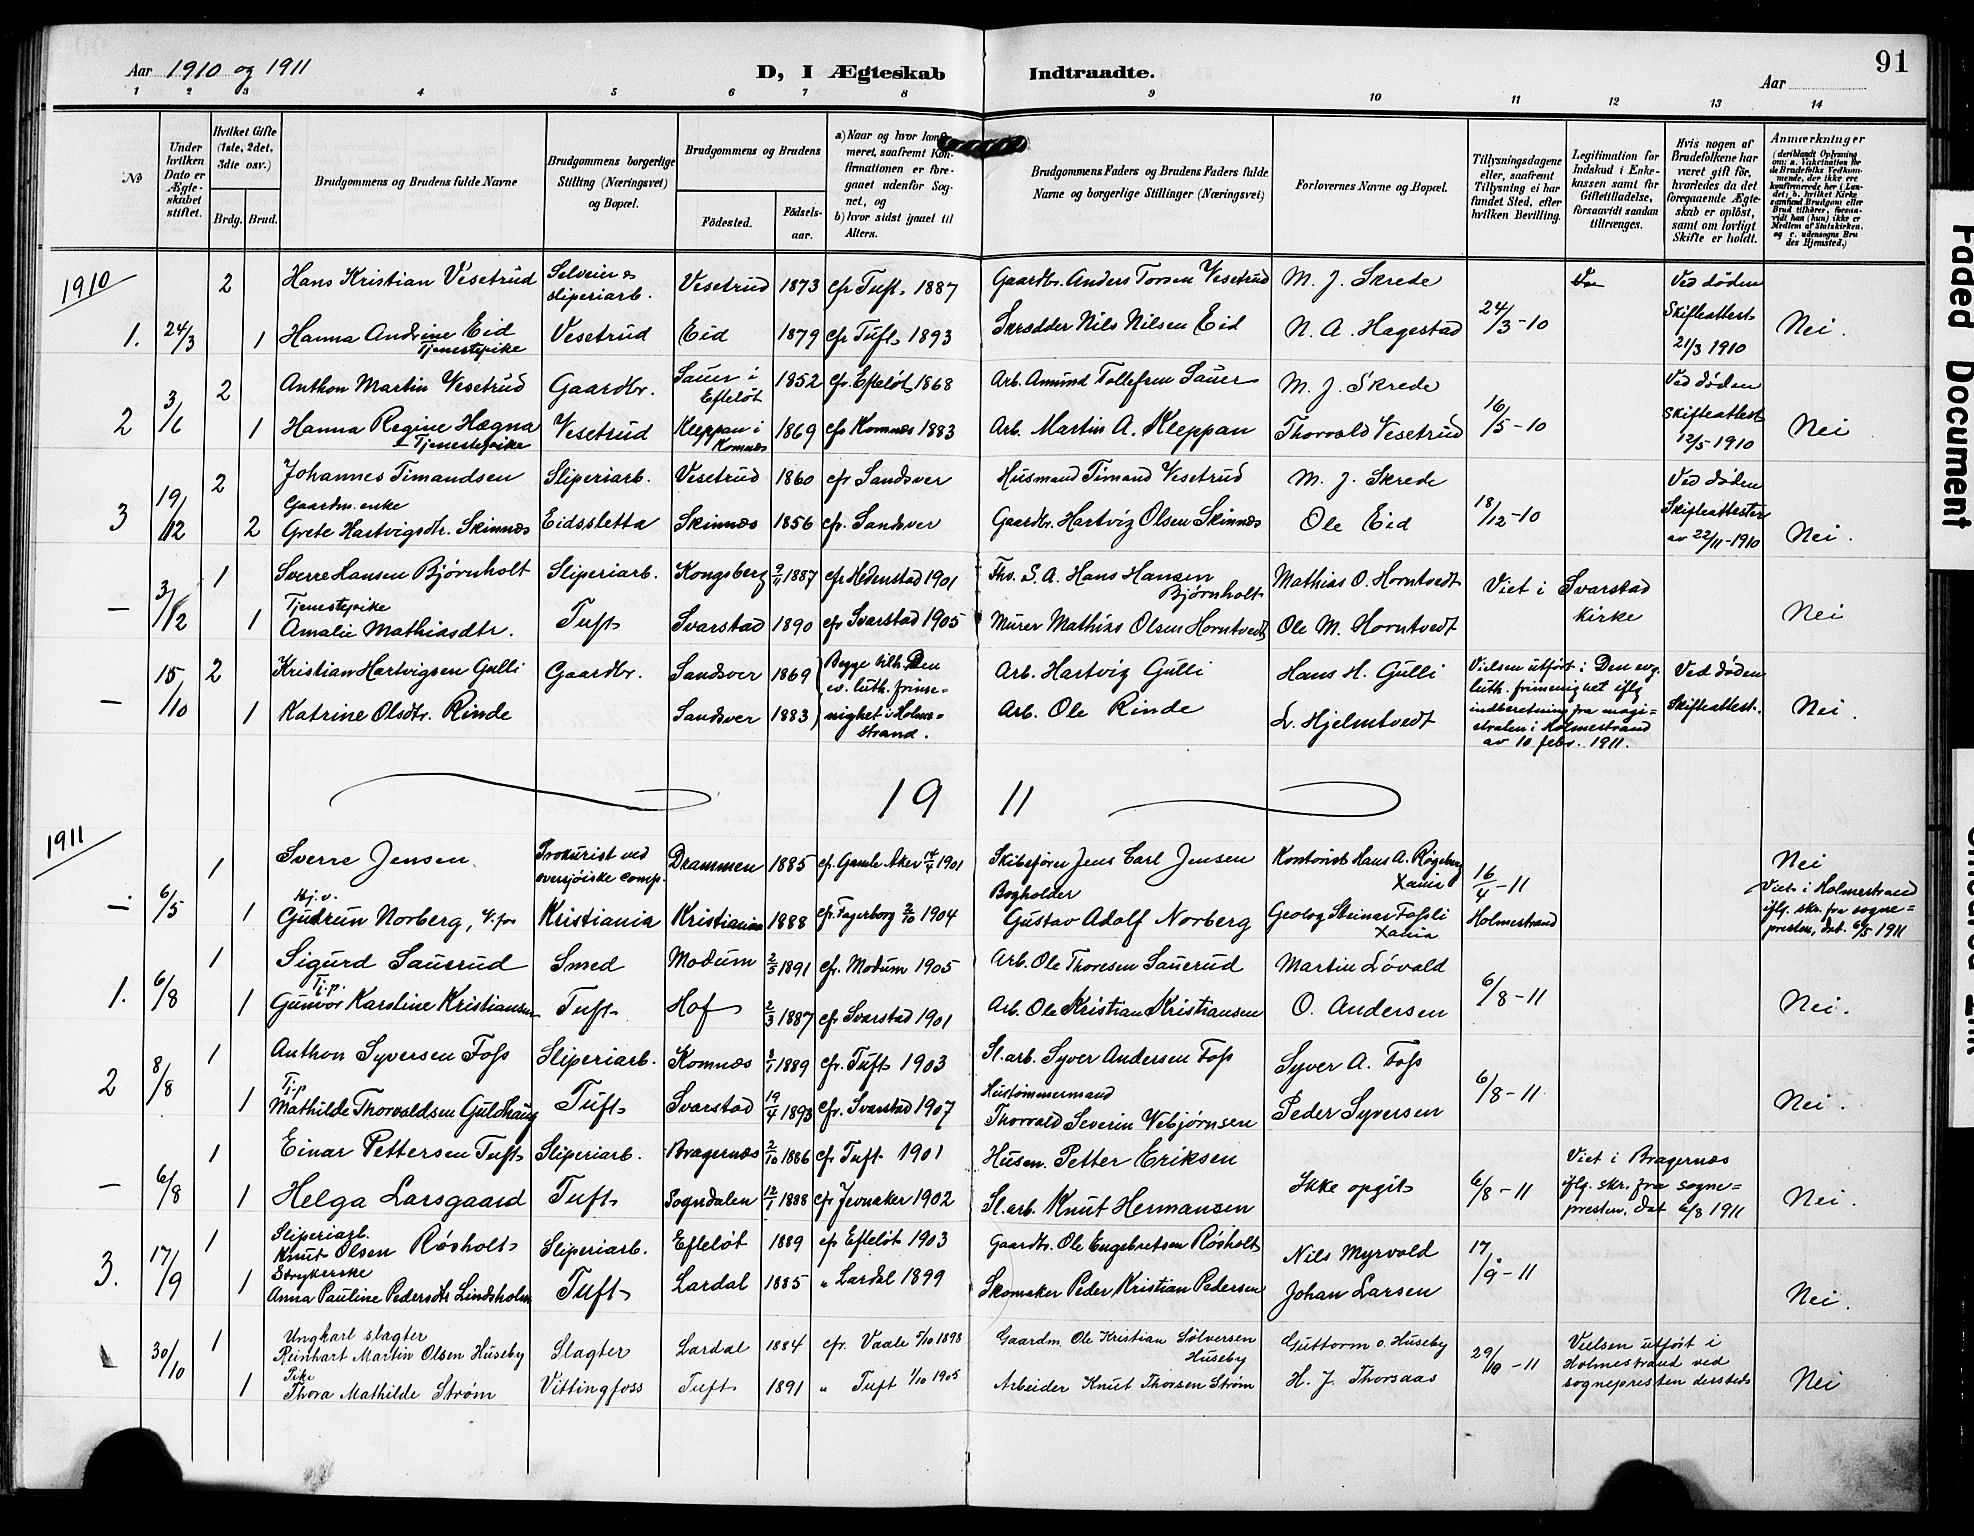 Aar 1910 og 1911
D, I Ægteskab Indtraadte.
Aar
91
1 2 3 4 5 6 7 8 9 10 11 12 13 14
No
Under hvilken Dato er Ægteskabet stiftet.
Hvilket Gifte (1ste, 2det, 3die osv.)
Brdg. Brud.
Brudgommens og Brudens fulde Navne
Brudgommens borgerlige Stilling (Næringsvei) og Bopæl.
Brudgommens og Brudens
Fødested. Fødselsaar.
a) Naar og hvor konfirmeret, saafremt Konfirmationen er foregaaet udenfor Sognet, og
b) hvor sidst gaaet til Alters.
Brudgommens Faders og Brudens Faders fulde Navne og borgerlige Stillinger (Næringsvei)
Forlovernes Navne og Bopæl.
Tillysningsdagene eller, saafremt Tillysning ei har fundet Sted, efter hvilken Bevilling.
Legitimation for Indskud i Enkekassen samt for Giftetilladelse, forsaavidt saadan tiltrænges.
Hvis nogen af Brudefolkene har været gift før, hvorledes da det foregaaende Ægteskab er opløst, samt om lovligt Skifte er holdt.
Anmærkninger
(deriblandt Oplysning om: a. Vakcination for de Brudefolks Vedkommende, der ikke ere konfirmerede her i Landet; b. hvilket Kirkesamfund Brudgom eller Brud tilhører, forsaavidt han (hun) ikke er Medlem af Statskirken. og c. udensogns Brudes Hjemsted.)
1910
2 Hans Kristian Vesetrud Selveier & sliperiarb. Vesetrud 1873 cfr Tuft 1887 Gaardbr. Anders Torsen Vesetrud M. J. Skrede Ved døden
1. 24/3 1 Hanna Andrine Eid Tjenestepike Vesetrud Eid 1879 cfr Tuft 1893 Skrædder Nils Nilsen Eid N. A. Hagestad 24/3-10 Skifteattest 21/3 1910 Nei.
2 Anthon Martin Vesetrud Gaardbr. Sauer i Efteløt 1852 cfr. Efteløt 1868 Arb. Amund Tollefsen Sauer M. J. Skrede Ved døden
2 3/6 1 Hanna Regine Hægna Tjenestepike Vesetrud Kleppan i Komnes 1869 cfr Komnes 1883 Arb. Martin A. Kleppan Thorvald Vesetrud 16/5-10 Skifteattest 12/5 1910 Nei
2 Johannes Timandsen Sliperiarb. Vesetrud 1860 cfr Sandsver Husmand Timand Vesetrud M. J. Skrede Ved døden
3 19/12 2 Gaardm. enke Grete Hartvigsdtr. Skinnes Eidssletta Skinnes 1856 cfr. Sandsver Gaardbr. Hartvig Olsen Skinnes Ole Eid 18/12-10 Skifteattester av 22/11-1910 Nei.
1 Sverre Hansen Bjørnholt Sliperiarb. Kongsberg 1887 cfr Hedenstad 1901 Fhv. S. A. Hans Hansen Bjørnholt Mathias O. Horntvedt Viet i Svarstad kirke
— 3/12 1 Tjenestepike Amalie Mathiasdtr. Tuft Svarstad 1890 cfr Svarstad 1905 Murer Mathias Olsen Horntvedt Ole M. Horntvedt Nei
2 Kristian Hartvigsen Gulli Gaardbr. Sandsver 1869 Begge tilh. Den ev. luth. frimenighet i Holmestrand. Arb. Hartvig Gulli Hans H. Gulli Vielsen utført i Den evg. luth. frimenighet iflg indberetning fra magistraten i Holmestrand av 10 febr. 1911. Ved døden
— 15/10 1 Katrine Olsdtr. Rinde Sandsver 1883 Arb. Ole Rinde L. Hjelmtvedt Skifteattest. Nei.
19 11
1911
1 Sverre Jensen Prokurist ved oversjøiske comp. Drammen 1885 cfr. Gamle Aker 14/4 1901 Skibsfører Jens Carl Jensen Kontorist Hans A. Røgeberg Xania 16/4-11 Nei
— 6/5 1 Hj.v. Gudrun Norberg, Kristiania Kristiania 1888 cfr. Fagerborg 2/10 1904 Bogholder Gustav Adolf Norberg Geolog Steinar Fossli Xania Holmestrand Viet i Holmestrand iflg. skr. fra sognepresten, dat. 6/5 1911
1 Sigurd Sauerud Smed Modum 2/5 1891 cfr. Modum 1905 Arb. Ole Thoresen Sauerud Martin Løvald
1. 6/8 1 Tj.p. Gunvor Karoline Kristiansen Tuft Hof 2/3 1887 cfr Svarstad 1901 Arb. Ole Kristian Kristiansen O. Andersen 6/8-11 Nei.
1 Anthon Syversen Foss Sliperiarb. Komnæs 1889 cfr. Tuft 1903 Sl.arb. Syver Andersen Foss Syver A. Foss
2 8/8 1 Tj.p Mathilde Thorvaldsen Guldhaug Tuft Svarstad 19/4 1893 cfr. Svarstad 1907 Hustømmermand Thorvald Severin Vebjørnsen Peder Syversen 6/8-11 Nei.
1 Einar Pettersen Tuft Sliperiarb. Bragernæs 2/10 1886 cfr Tuft 1901 Husm. Petter Eriksen Viet i Bragernæs iflg. skr. fra sognepresten. Dat 6/8 1911
— 6/8 1 Helga Larsgaard Tuft Sogndalen 12/1 1888 cfr Jevnaker 1902 Sl. arb. Knut Hermansen Ikke opgit 6/8-11 Nei.
1 Sliperiarb. Knut Olsen Røsholt Sliperiarb. Efteløt 1889 cfr Efteløt 1903 Gaardbr. Ole Engebretsen Røsholt Nils Myrvold
3. 17/9 1 Strykerske Anna Pauline Pedersdtr Lindsholm Tuft Lardal 1885 " Lardal 1899 Skomaker Peder Kristian Pedersen Johan Larsen 17/9-11 Nei.
1 Ungkarl slagter Reinhart Martin Olsen Huseby Slagter Lardal 1884 cfr. Vaale 5/10 1898 Gaardm. Ole Kristian Sølversen Huseby Guttorm O. Huseby Vielsen utført i Holmestrand ved sognepresten dersteds
— 30/10 1 Pike Thora Mathilde Strøm Vittingfoss Tuft 1891 " Tuft 1/10 1905 Arbeider Knut Thorsen Strøm H. J. Thorsaas 29/10-11 Nei
Faded Document